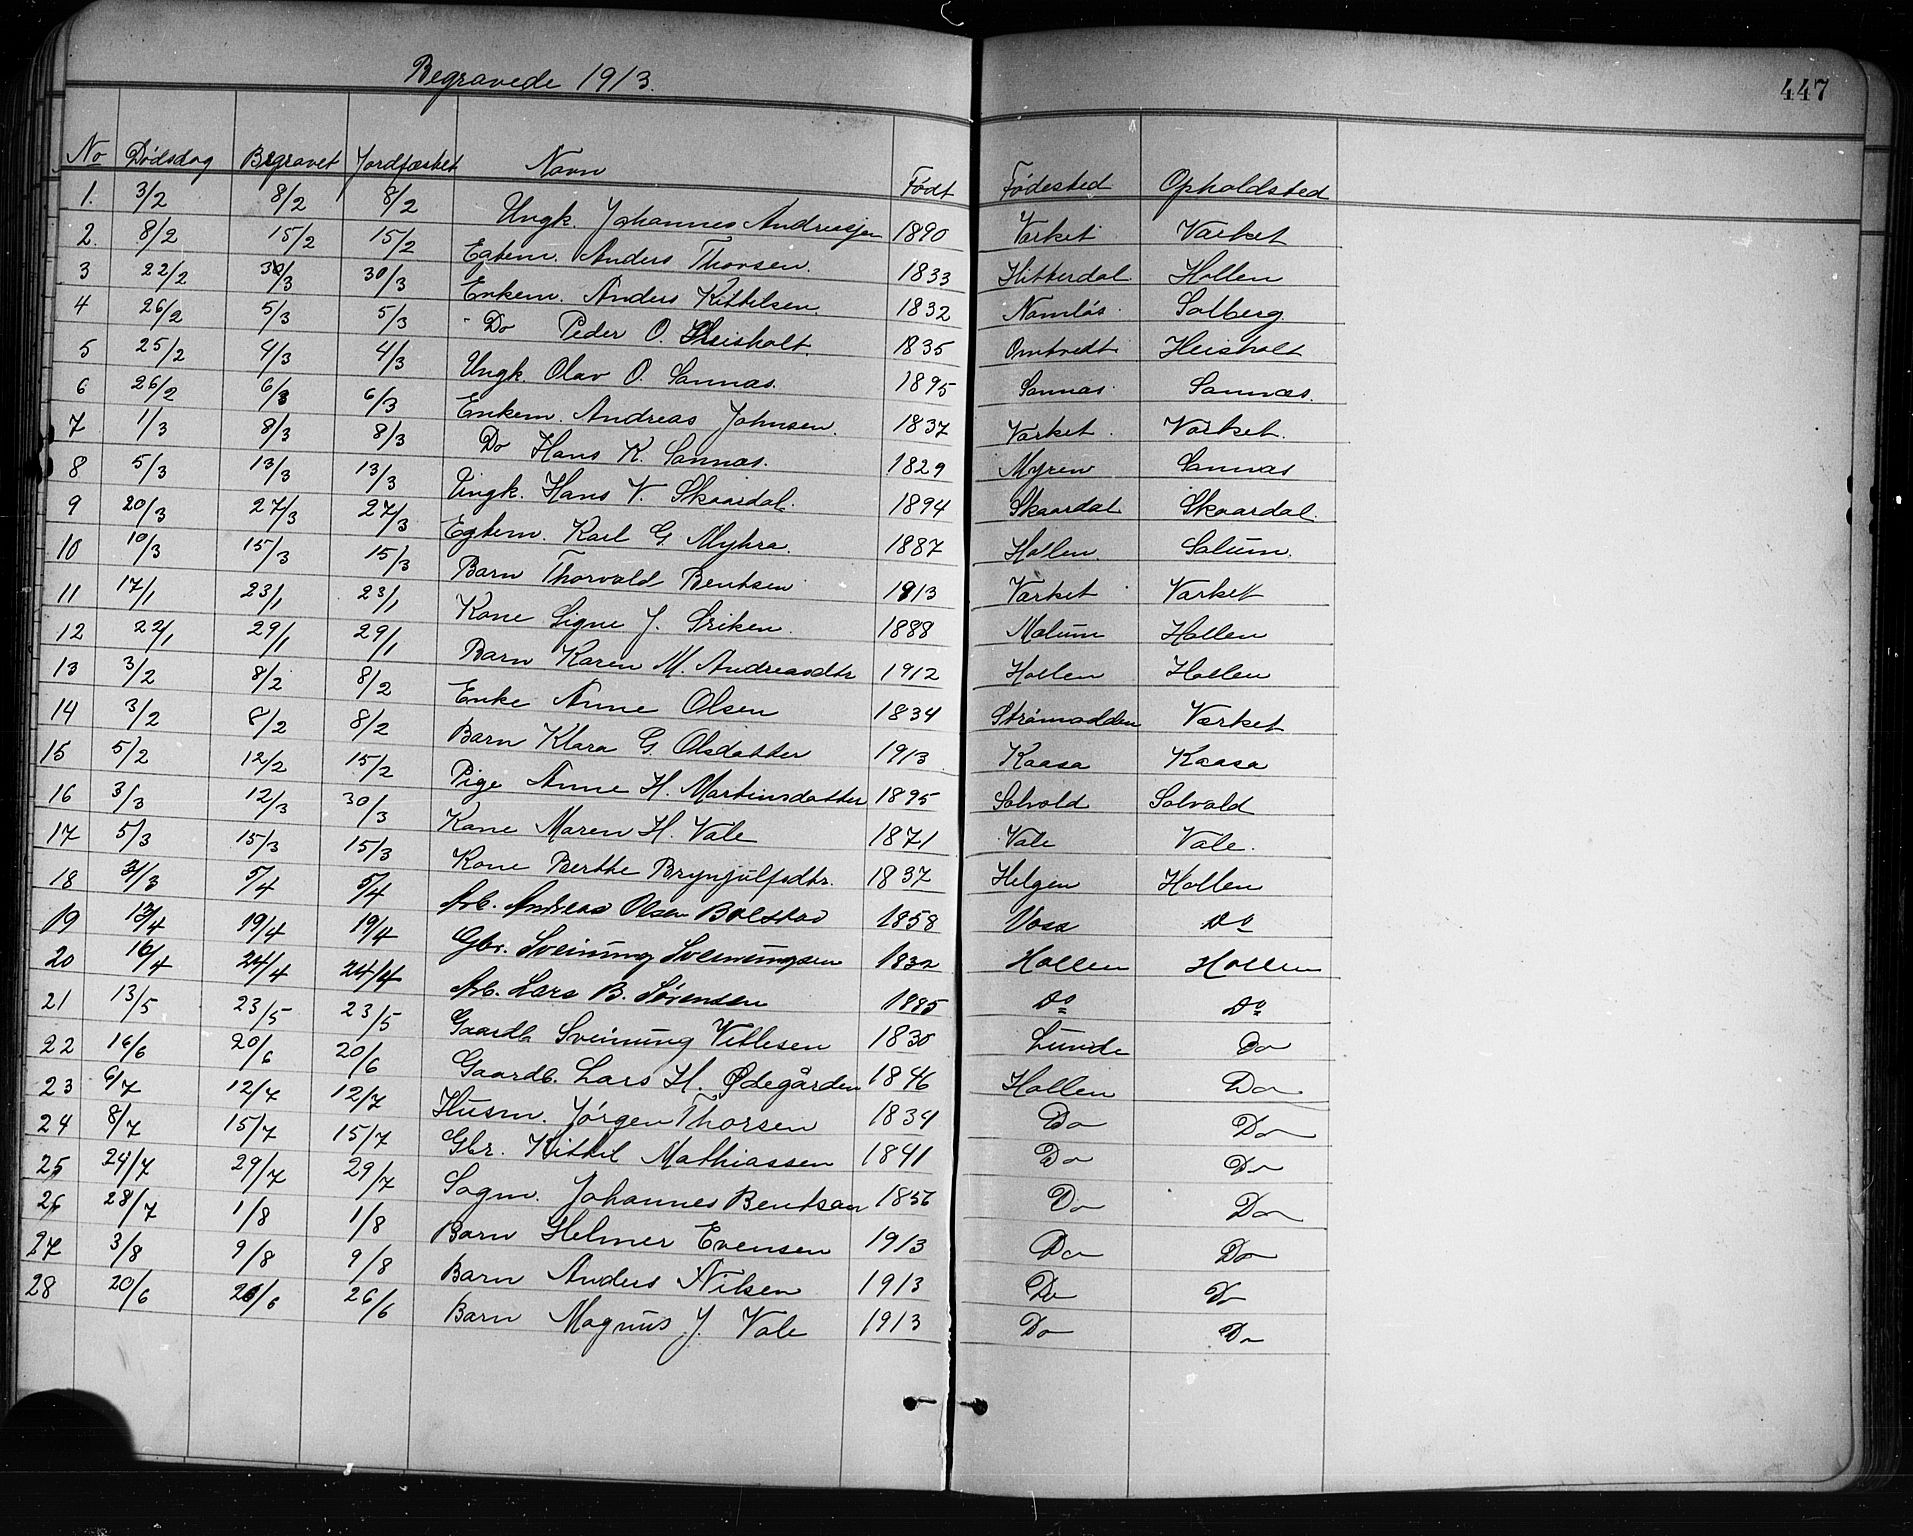 447
Begravede 1913.
No Dödsdag Begravet Jordfæstet Navn Födt Födested Opholdsted
1. 3/2 8/2 8/2 Ungk. Johannes Andreasen 1890 Værket Værket
2. 8/2 15/2 15/2 Egtem. Anders Thorsen. 1833 Hitterdal Hollen
3 22/2 30/3 30/3 Enkem. Anders Kittilsen 1832 Namlös Solberg
4 26/2 5/3 5/3 Do Peder O. Heisholt. 1835 Omtvedt Heisholt
5 25/2 4/3 4/3 Ungk. Olav O. Sannæs. 1895 Sannæs. Sannæs.
6 26/2 6/3 6/3 Enkem. Andreas Johnsen. 1837 Værket. Værket.
7 1/3 8/3 8/3 Do Hans K. Sannæs. 1829 Myren Sannæs
8 5/3 13/3 13/3 Ungk. Hans V. Skaardal. 1894 Skaardal Skaardal.
9 20/3 27/3 27/3 Egtem. Karl G. Myhra. 1887 Hollen. Solum.
10 10/3 15/3 15/3 Barn Thorvald Bentsen 1913 Værket Værket
11 17/1 23/1 23/1 Kone Signe J. Sriken. 1888 Melum Hollen
12 22/1 29/1 29/1 Barn Karen M. Andreasdtr 1912 Hollen Hollen
13 3/2 8/2 8/2 Enke Anne Olsen 1834 Strömodden Værket
14 3/2 8/2 8/2 Barn Klara G. Olsdatter 1913 Kaasa Kaasa
15 5/2 12/2 15/2 Pige Anne H. Martinsdatter 1895 Solvold Solvold
16 3/3 12/3 30/3 Kone Maren H. Vale 1871 Vale Vale.
17 5/3 15/3 15/3 Kone Berthe Brynjulfsdtr. 1837 Helgen Hollen
18 31/3 5/4 5/4 Arb. Andreas Olsen Bolstad 1858 Voss Do
19 13/4 19/4 19/4 Gbr. Sveinung Sveinungsen 1832 Hollen Hollen
20 16/4 24/4 24/4 Arb. Lars B. Sörensen 1885 Do Do
21 13/5 23/5 23/5 Gaardb Sveinung Vetlesen 1830 Lunde Do
22 16/6 20/6 20/6 Gaardb. Lars H. Ødegården 1846 Hollen Do
23 6/7 12/7 12/7 Husm. Jörgen Thorsen 1834 Do Do
24 8/7 15/7 15/7 Gbr. Kittil Mathiassen 1841 Do Do
25 24/7 29/7 29/7 Sagm. Johannes Bentsen 1856 Do Do
26 28/7 1/8 1/8 Barn Helmer Evensen 1913 Do Do
27 3/8 9/8 9/8 Barn Anders Nilsen 1913 Do Do
28 20/6 26/6 26/6 Barn Magnus J. Vale 1913 Do Do